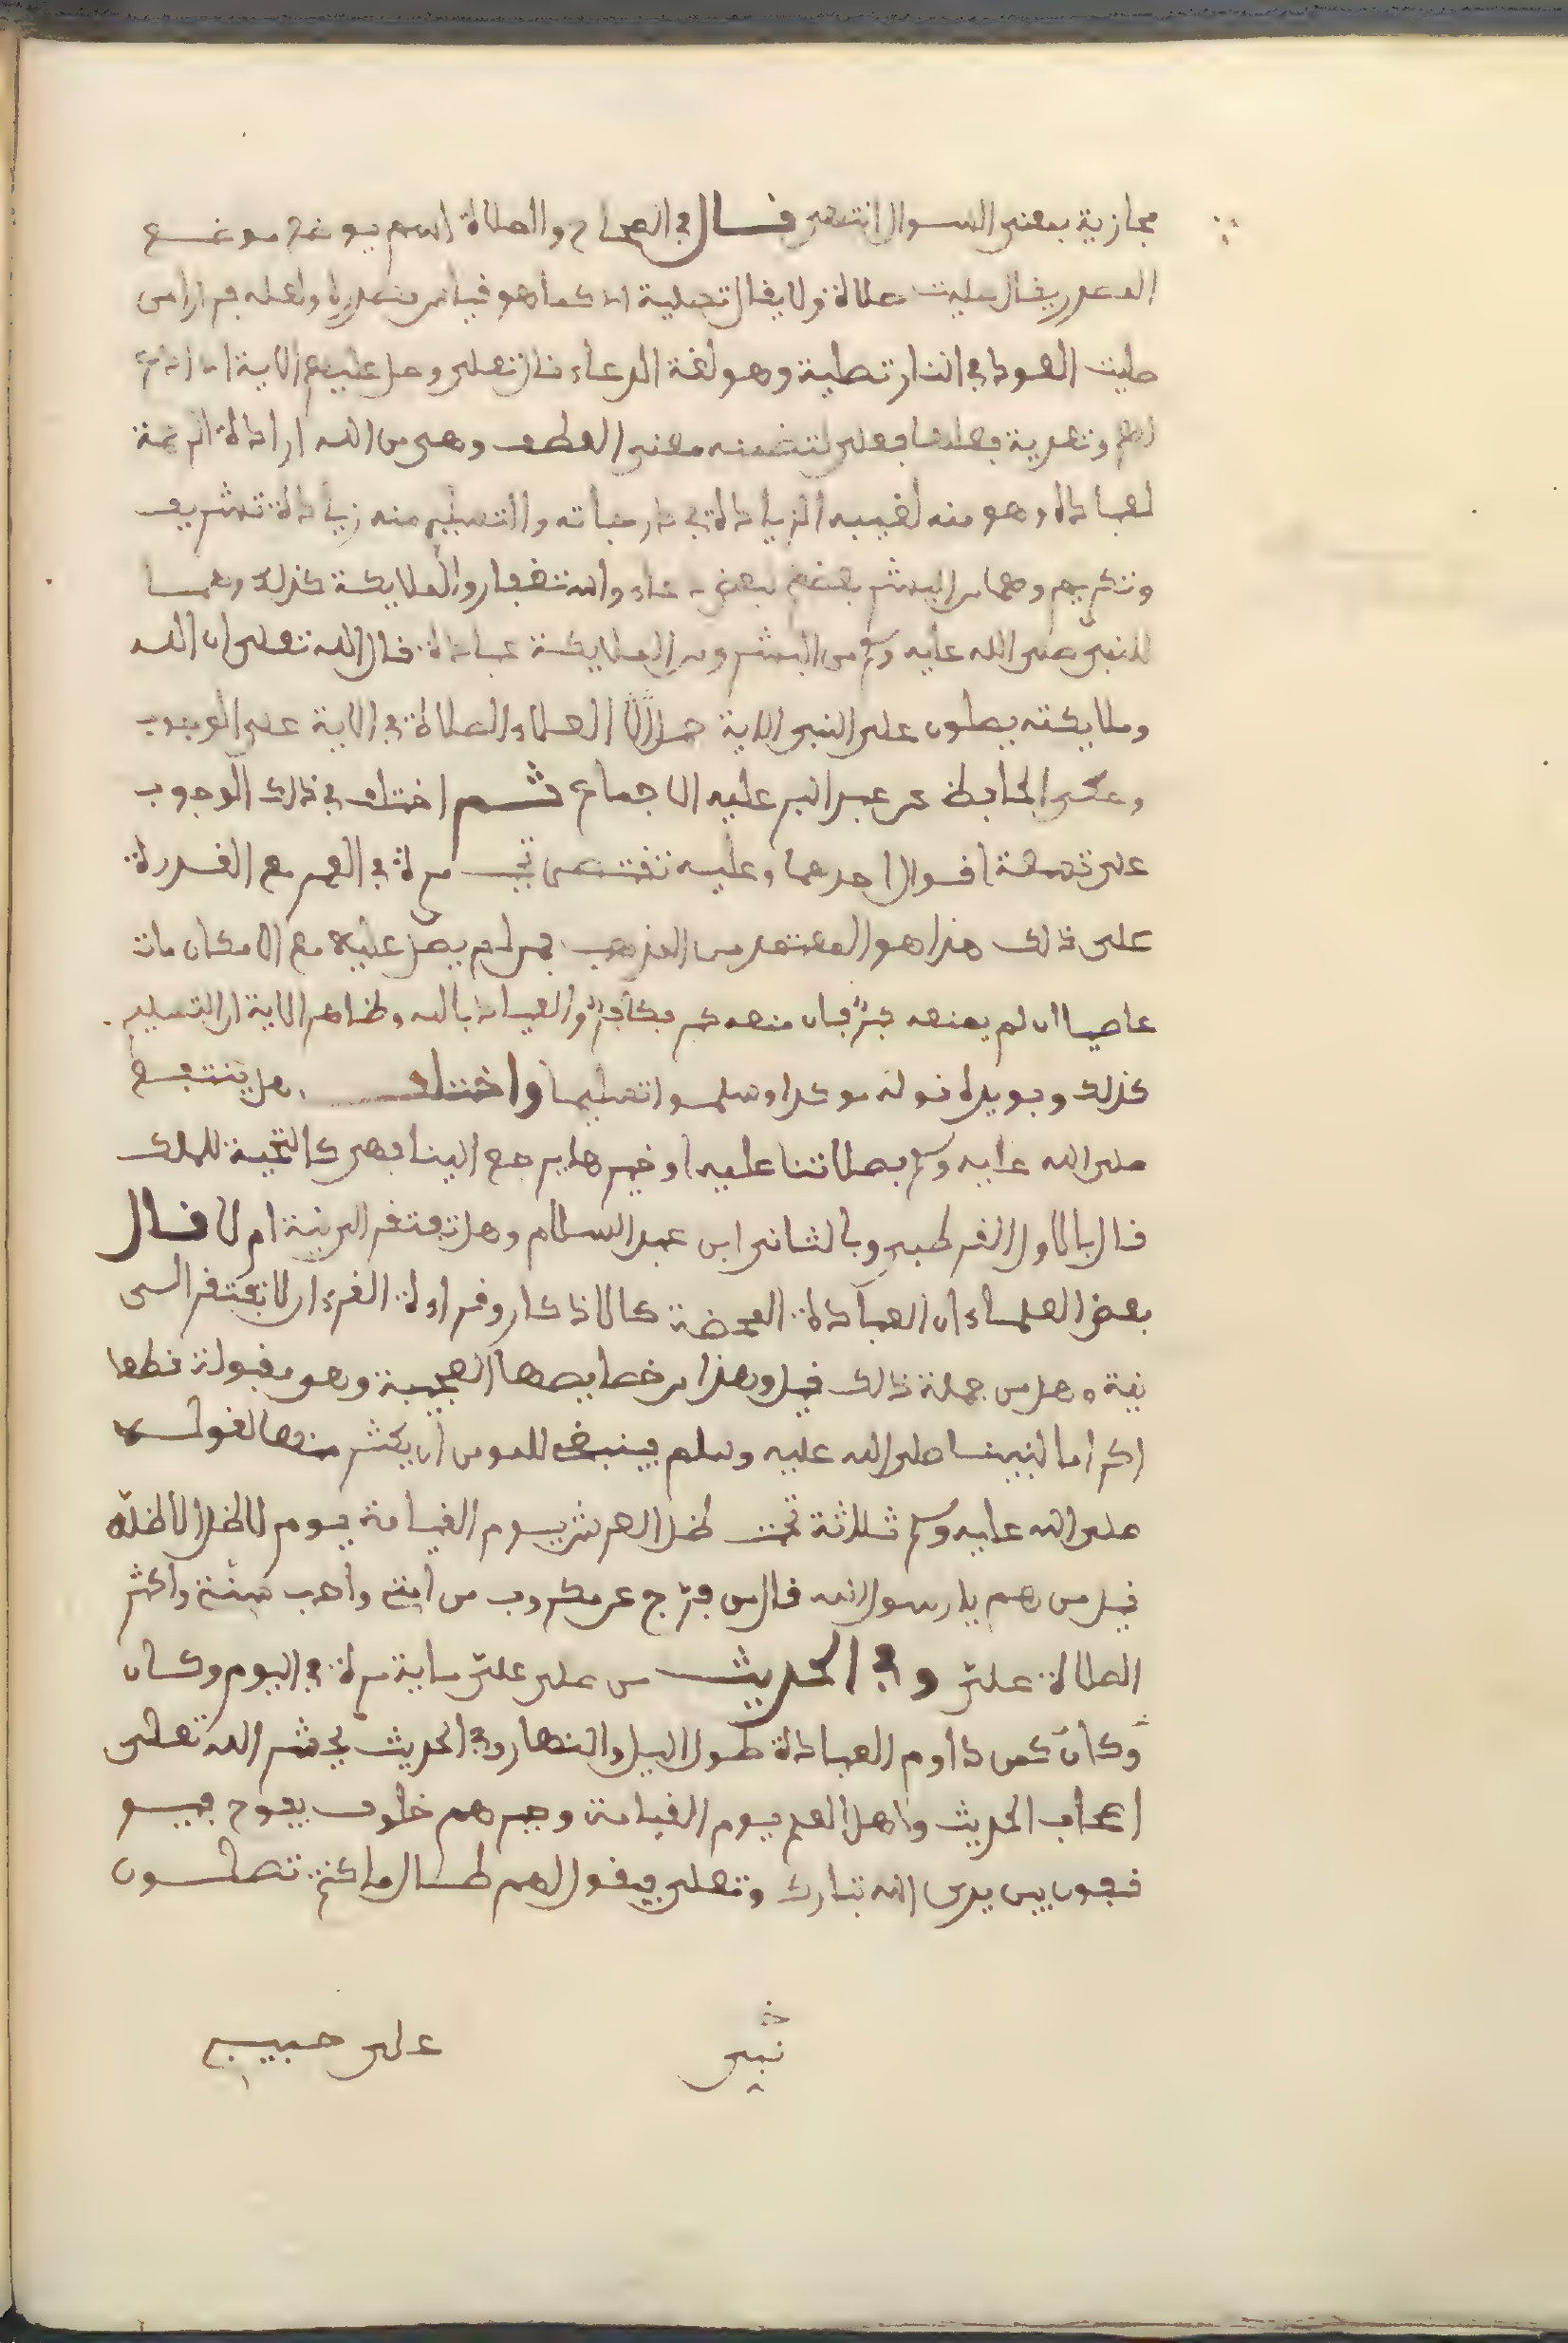 مجازية بمعنى السوال انتهى قال في الصحاح والصلاة اسم يوضع موضع
المصدر يقال صليت صلاة ولا يقال تصلية اه كما هو قياس مصدره ولعله فرارا من
صليت العود في النار تصلية وهو لغة الدعاء قال تعلى وصل عليهم الاية اي ادع
لهم وتعدية فعلها بعلى لتضمنه معنى العطف وهي من الله ارادة الرحمة
لعباده وهو منه لنبيه الزيادة في درجاته والتسليم منه زيادة تشريف
وتكريم وهما من البشر بعضهم لبعض دعاء واستغفار والملايكة كذلك وهما
للنبي صلى الله عليه وسلم من البشر ومن الملايكة عبادة قال الله تعلى ان الله
وملايكته يصلون على النبي الاية حمل العلماء الصلاة في الاية على الوجوب
وحكى الحافظ عن عبد البر عليه الاجماع ثم اختلف في ذلك الوجوب
على تسعة اقوال احدها وعليه تقتصر تجب مرة في العمر مع القدرة
على ذلك هذا هو المعتمد من المذهب فمن لم يصل عليه مع الامكان مات
عاصيا ان لم يمنعه كبر فان منعه كبر فكافر والعياذ بالله وظاهر الاية ان التسليم
كذلك ويويده قوله موكدا وسلموا تسليما واختلف هل ينتفع
صلى الله عليه وسلم بصلاتنا عليه او خيرها يرجع الينا فهي كالتحية للملك
قال بالاول القرطبي وبالثاني ابن عبد السلام وهل تفتقر الى نية ام لا قال
بعض العلماء ان العبادة المحضة كالاذكار وقراءة القرءان لا تفتقر الى
نية وهل من جملة ذلك قيل وهذا من خصايصها العجيبة وهو مقبولة قطعا
اكراما لنبينا صلى الله عليه وسلم فينبغي للمومن ان يكثر منها لقوله
صلى الله عليه وسلم ثلاثة تحت ظل العرش يوم القيامة يوم لا ظل الا ظله
قيل من هم يا رسول الله قال من فرج عن مكروب من امتي واحب سنتي واكثر
الصلاة علي وفي الحديث من صلى علي ماية مرة في اليوم وكان
وكان كمن داوم العبادة طول اليل والنهار وفي الحديث يحشر الله تعلى
اصحاب الحديث واهل العلم يوم القيامة وحبرهم خلوف يفوح فيــو
قفون بين يدي الله تبارك وتعلى فيقول لهم طال ما كنتم تصلون
على حبيبي
نبيي